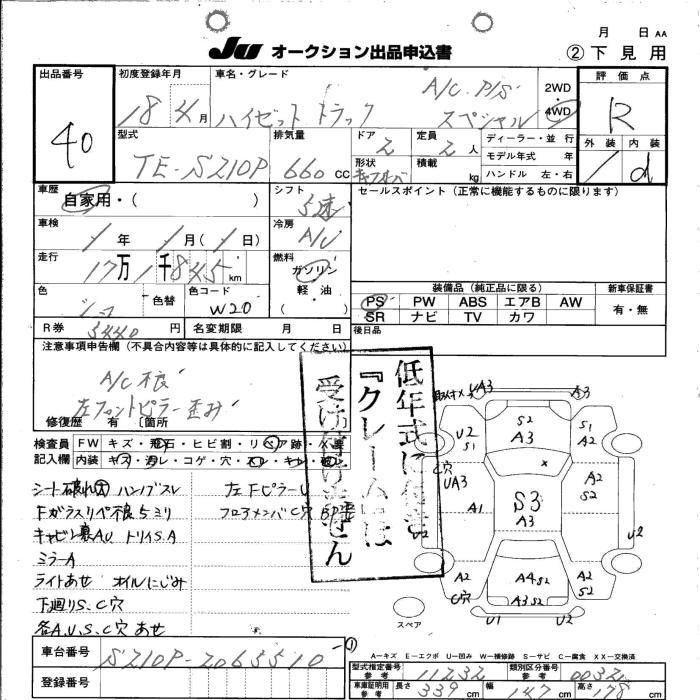 月 日 AA
JU オークション出品申込書
② 下見用
出品番号
40
初度登録年月
18 4月
車名・グレード
ハイゼットトラック
A/C P/S
スペシャル
2WD
・
4WD
評価点
R
外装 内装
d
型式
TE-S210P
排気量
660 CC
ドア
2
定員
2 人
形状
積載
kg
ディーラー・並行
モデル年式 年
ハンドル 左・右
車歴
自家用・( )
シフト
5速
セールスポイント(正常に機能するものに限ります)
車検
1年 1月(1日)
冷房
A/C
走行
17万1千845 km
燃料
ガソリン
軽油
( )
色
色替
色コード
W20
装備品(純正品に限る)
新車保証書
PS PW ABS エアB AW
SR ナビ TV カワ
有・無
R券 5440円
名変期限 月 日
後日品
注意事項申告欄(不具合内容等は具体的に記入してください)
A/C不良
左フロントピラー歪み
修復歴 有 〔箇所
低年式に付き
『クレームは
受け付けません
検査員
記入欄
FW キズ・飛石・ヒビ割・リペア跡・X要
内装 キズ・汚レ・コゲ・穴・スレ・キレ・
シート破れ大 ハンブスレ
左FピラーU
Fガラスリペ不良5ミリ
フロアメンバC穴
キャビン裏AU トリイS.A
ミラーA
ライトあせ オイルにじみ
下廻りS、C穴
各A.U.S.C穴 あせ
UA3
A3
U2
S1
S2
A3
S1
A2
C穴
UA3
A1
S3
A3
A2
S2
U2
U2
A2
C穴
A4S2
A3S2
A2
S2
U1
U2
スペア
A-キズ E-エクボ U-凹み W-補修跡 S-サビ C-腐食 XX-交換済
車台番号
S210P-2065510
登録番号
型式指定番号
参考
11232
類別区分番号
参考
0032
車庫証明用
参考
長さ 339 cm
幅 147 cm
高さ 178 cm